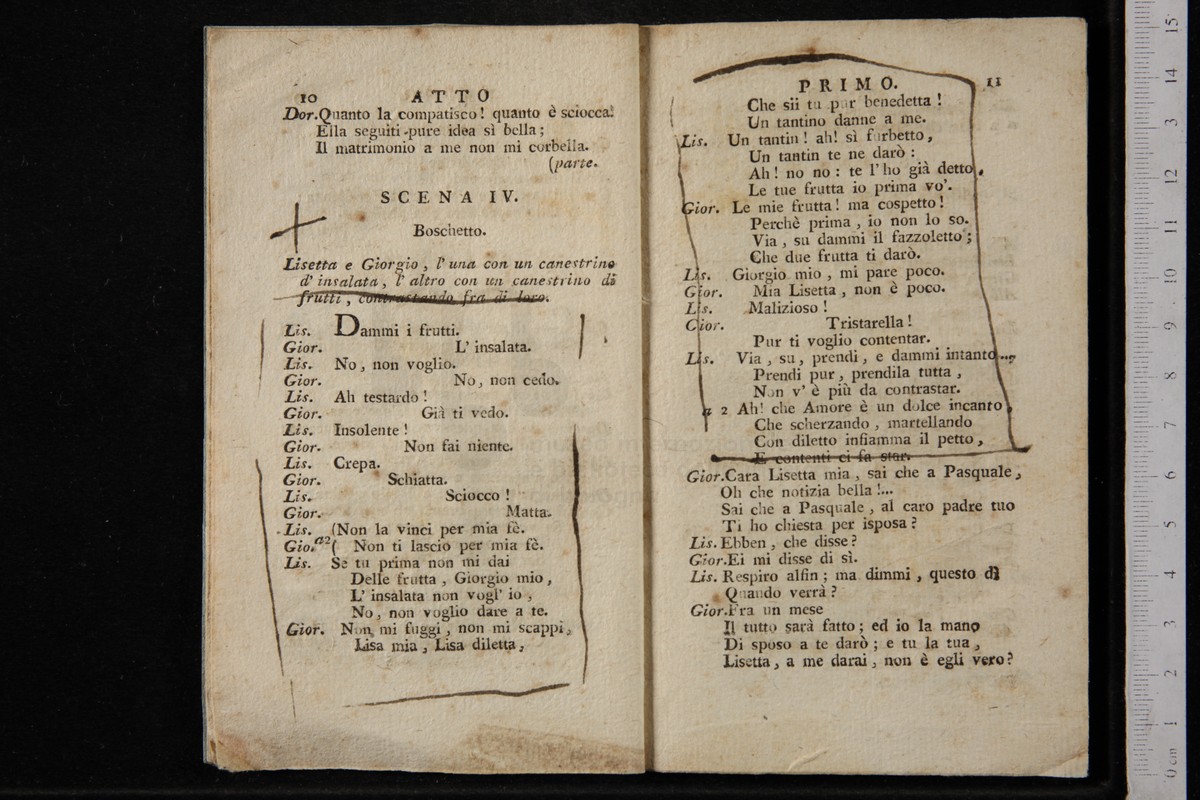 10 ATTO
Dor. Quanto la compatisco! quanto è sciocca!
Ella seguiti pure idea sì bella;
Il matrimonio a me non mi corbella.
(parte.
SCENA IV.
Boschetto.
Lisetta e Giorgio, l' una con un canestrino
d' insalata, l' altro con un canestrino di
frutti, contrastando fra di loro.
Lis. Dammi i frutti.
Gior. L' insalata.
Lis. No, non voglio.
Gior. No, non cedo.
Lis. Ah testardo!
Gior. Già ti vedo.
Lis. Insolente!
Gior. Non fai niente.
Lis. Crepa.
Gior. Schiatta.
Lis. Sciocco!
Gior. Matta.
Lis. (Non la vinci per mia fè.
Gio. a2 ( Non ti lascio per mia fè.
Lis. Se tu prima non mi dai
Delle frutta, Giorgio mio,
L' insalata non vogl' io,
No, non voglio dare a te.
Gior. Non mi fuggi, non mi scappi,
Lisa mia, Lisa diletta,
PRIMO. 11
Che sii tu pur benedetta!
Un tantino danne a me.
Lis. Un tantin! ah! sì furbetto,
Un tantin te ne darò:
Ah! no no: te l' ho già detto,
Le tue frutta io prima vo'.
Gior. Le mie frutta! ma cospetto!
Perchè prima, io non lo so.
Via, su dammi il fazzoletto;
Che due frutta ti darò.
Lis. Giorgio mio, mi pare poco.
Gior. Mia Lisetta, non è poco.
Lis. Malizioso!
Gior. Tristarella!
Pur ti voglio contentar.
Lis. Via, su, prendi, e dammi intanto...
Prendi pur, prendila tutta,
Non v' è più da contrastar.
a 2 Ah! che Amore è un dolce incanto,
Che scherzando, martellando
Con diletto infiamma il petto,
E contenti ci fa star.
Gior. Cara Lisetta mia, sai che a Pasquale,
Oh che notizia bella!...
Sai che a Pasquale, al caro padre tuo
Ti ho chiesta per isposa?
Lis. Ebben, che disse?
Gior. Ei mi disse di sì.
Lis. Respiro alfin; ma dimmi, questo dì
Quando verrà?
Gior. Fra un mese
Il tutto sarà fatto; ed io la mano
Di sposo a te darò; e tu la tua,
Lisetta, a me darai, non è egli vero?
0 cm 1 2 3 4 5 6 7 8 9 10 11 12 13 14 15